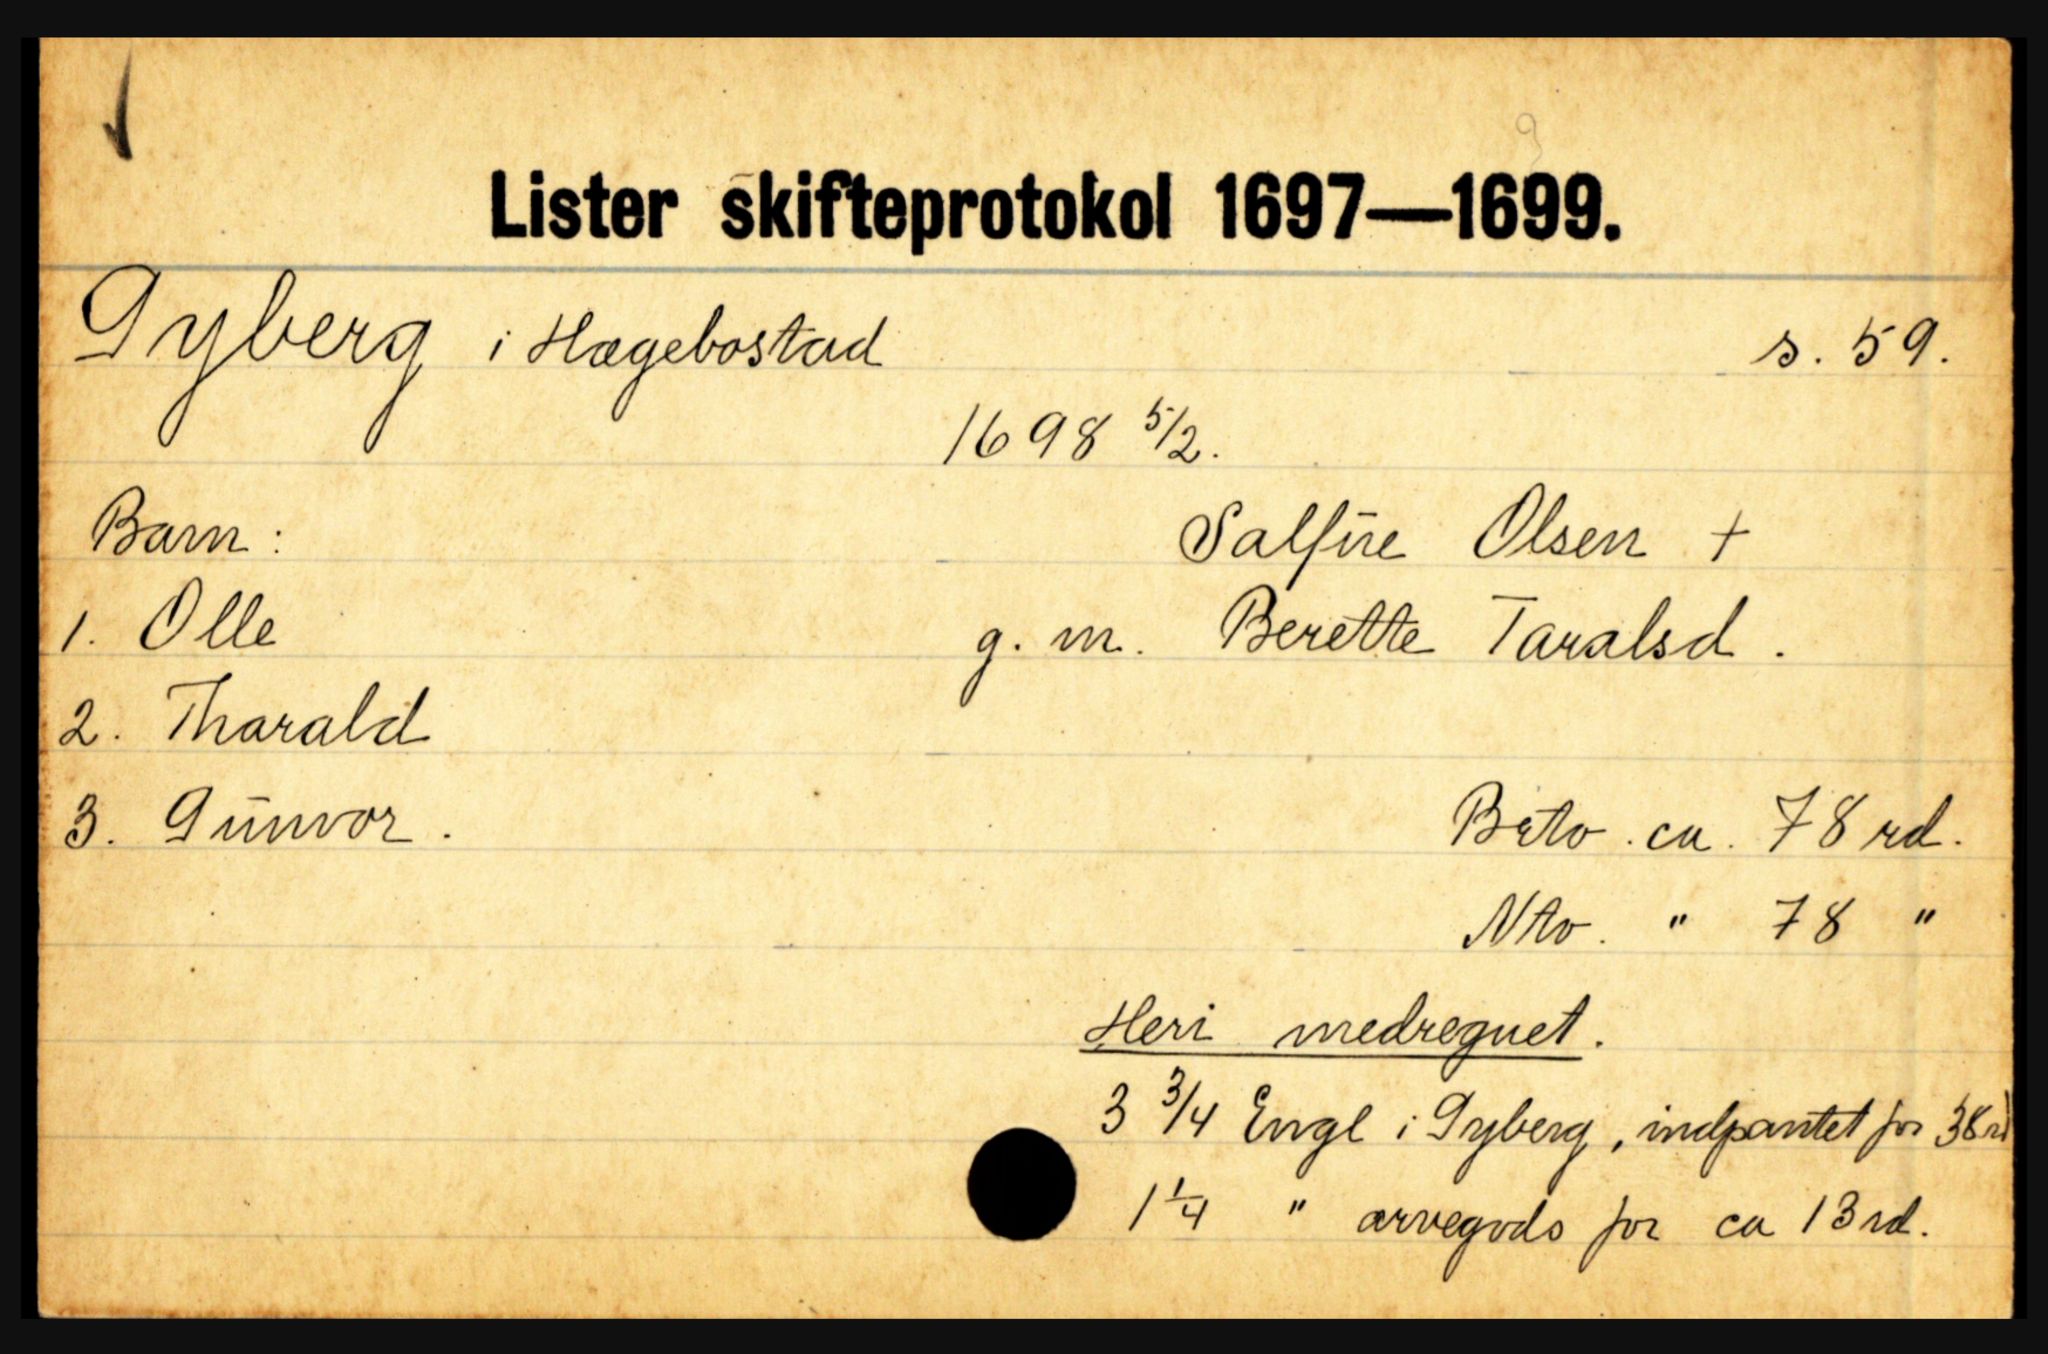 Lister skifteprotokol 1697—1699.
Gyberg i Hægebostad s. 59.
1698 5/2.
Barn: Salfue Olsen +
1. Olle g. m. Berette Taralsd.
2. Tharald
3. Gunvor. Brto. ca. 78 rd.
Nto. " 78 "
Heri medregnet.
3 3/4 Engl i Gyberg, indpantet for 38 rd
1 1/4 " arvegods for ca 13 rd.